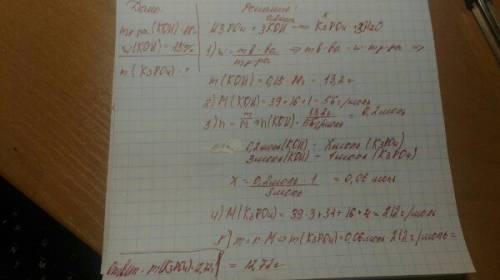 Дано:
mр-ра(KOH)=
w(KOH)=15%
m(K3PO4)-?
Решение:
0,2моль х
H3PO4 + 3KOH → K3PO4 + 3H2O
1) w = mв-ва / mр-ра ⇒ mв-ва = w · mр-ра ⇒
m(KOH) = 0,15 · = 13,2г
2) M(KOH) = 39+16+1 = 56г/моль
3) n = m/M ⇒ n(KOH) = 13,2г / 56г/моль = 0,2моль
0,2моль(KOH) - Xмоль (K3PO4)
3моль(KOH) - 1моль(K3PO4)
X = 0,2моль · 1 / 3моль = 0,06 моль
4) M(K3PO4) = 39·3+31+16·4 = 212г/моль
5) m = n·M ⇒ m(K3PO4) = 0,06моль · 212г/моль =
= 12,72г
Ответ: m(K3PO4) = 12,72г